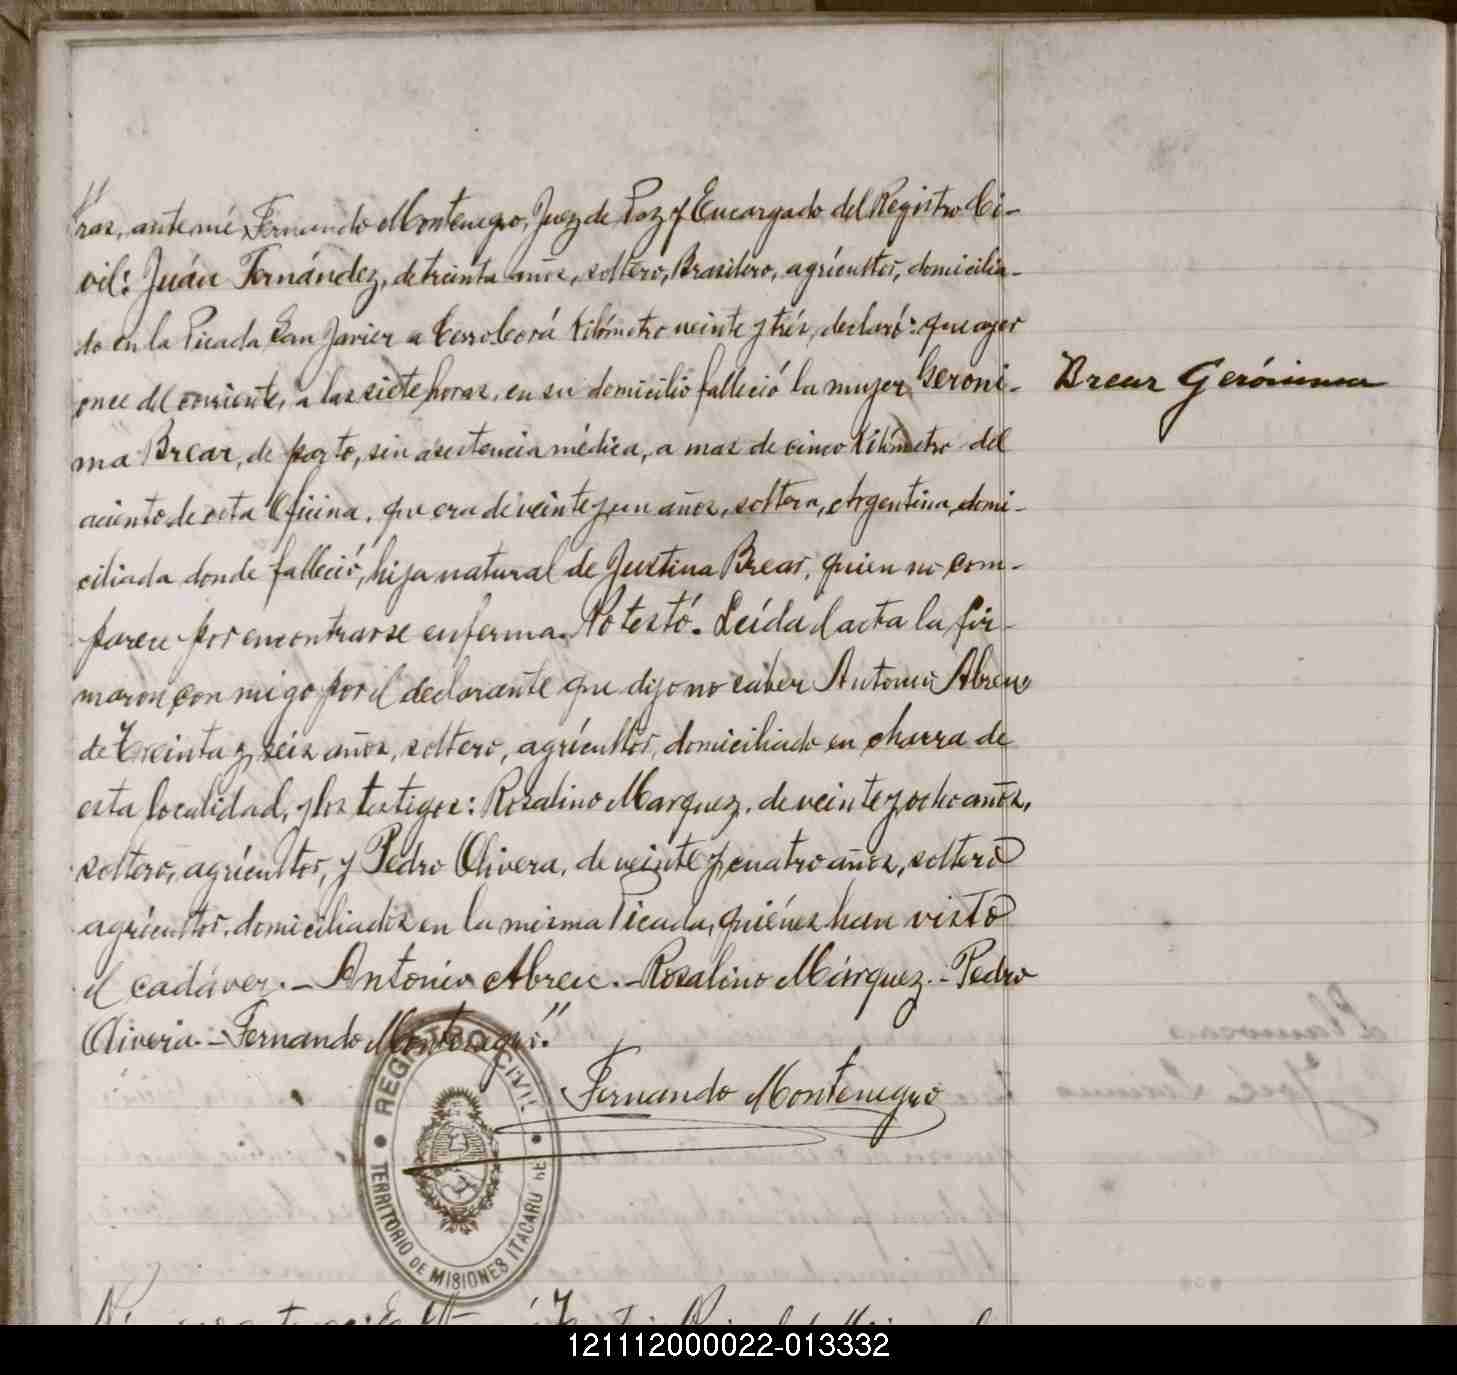 ras, ante mé Fernando Montenegro, Juez de Paz y Encargado del Registro Ci-
vil: Juán Fernández, de treinta años, soltero, Brasilero, agrícultor, domicilia-
do en la Picada San Javier a Cerro Corá Kilómetro veinte y trés, declaró: que ayer
once del corriente, a las siete horas, en su domicilio falleció la mujer Geroni-
ma Brear, de parto, sin asistencia médica, a mas de cinco Kilómetro del
aciento de esta Oficina, que era de veinte y un años, soltera, Argentina, domi-
ciliada donde falleció, hija natural de Justina Brear, quien no com-
parece por encontrarse enferma. No testó. Leída el acta la fir-
maron con migo por el declarante que dijo no saber Antonio Abreu
de treinta y seis años, soltero, agrícultor, domiciliado en charra de
esta localidad, y los testigos: Rosalino Marquez, de veinte y ocho años,
soltero, agrícultor, y Pedro Olivera, de veinte y cuatro años, soltero
agrícultor, domiciliados en la misma Picada, quiénes han visto
el cadáver. - Antonio Abreu. - Rosalino Márquez. - Pedro
Oliveria. - Fernando Montenegro."
Brear Gerónima
Fernando Montenegro
REGISTRO CIVIL
TERRITORIO DE MISIONES ITACARUARE
121112000022-013332